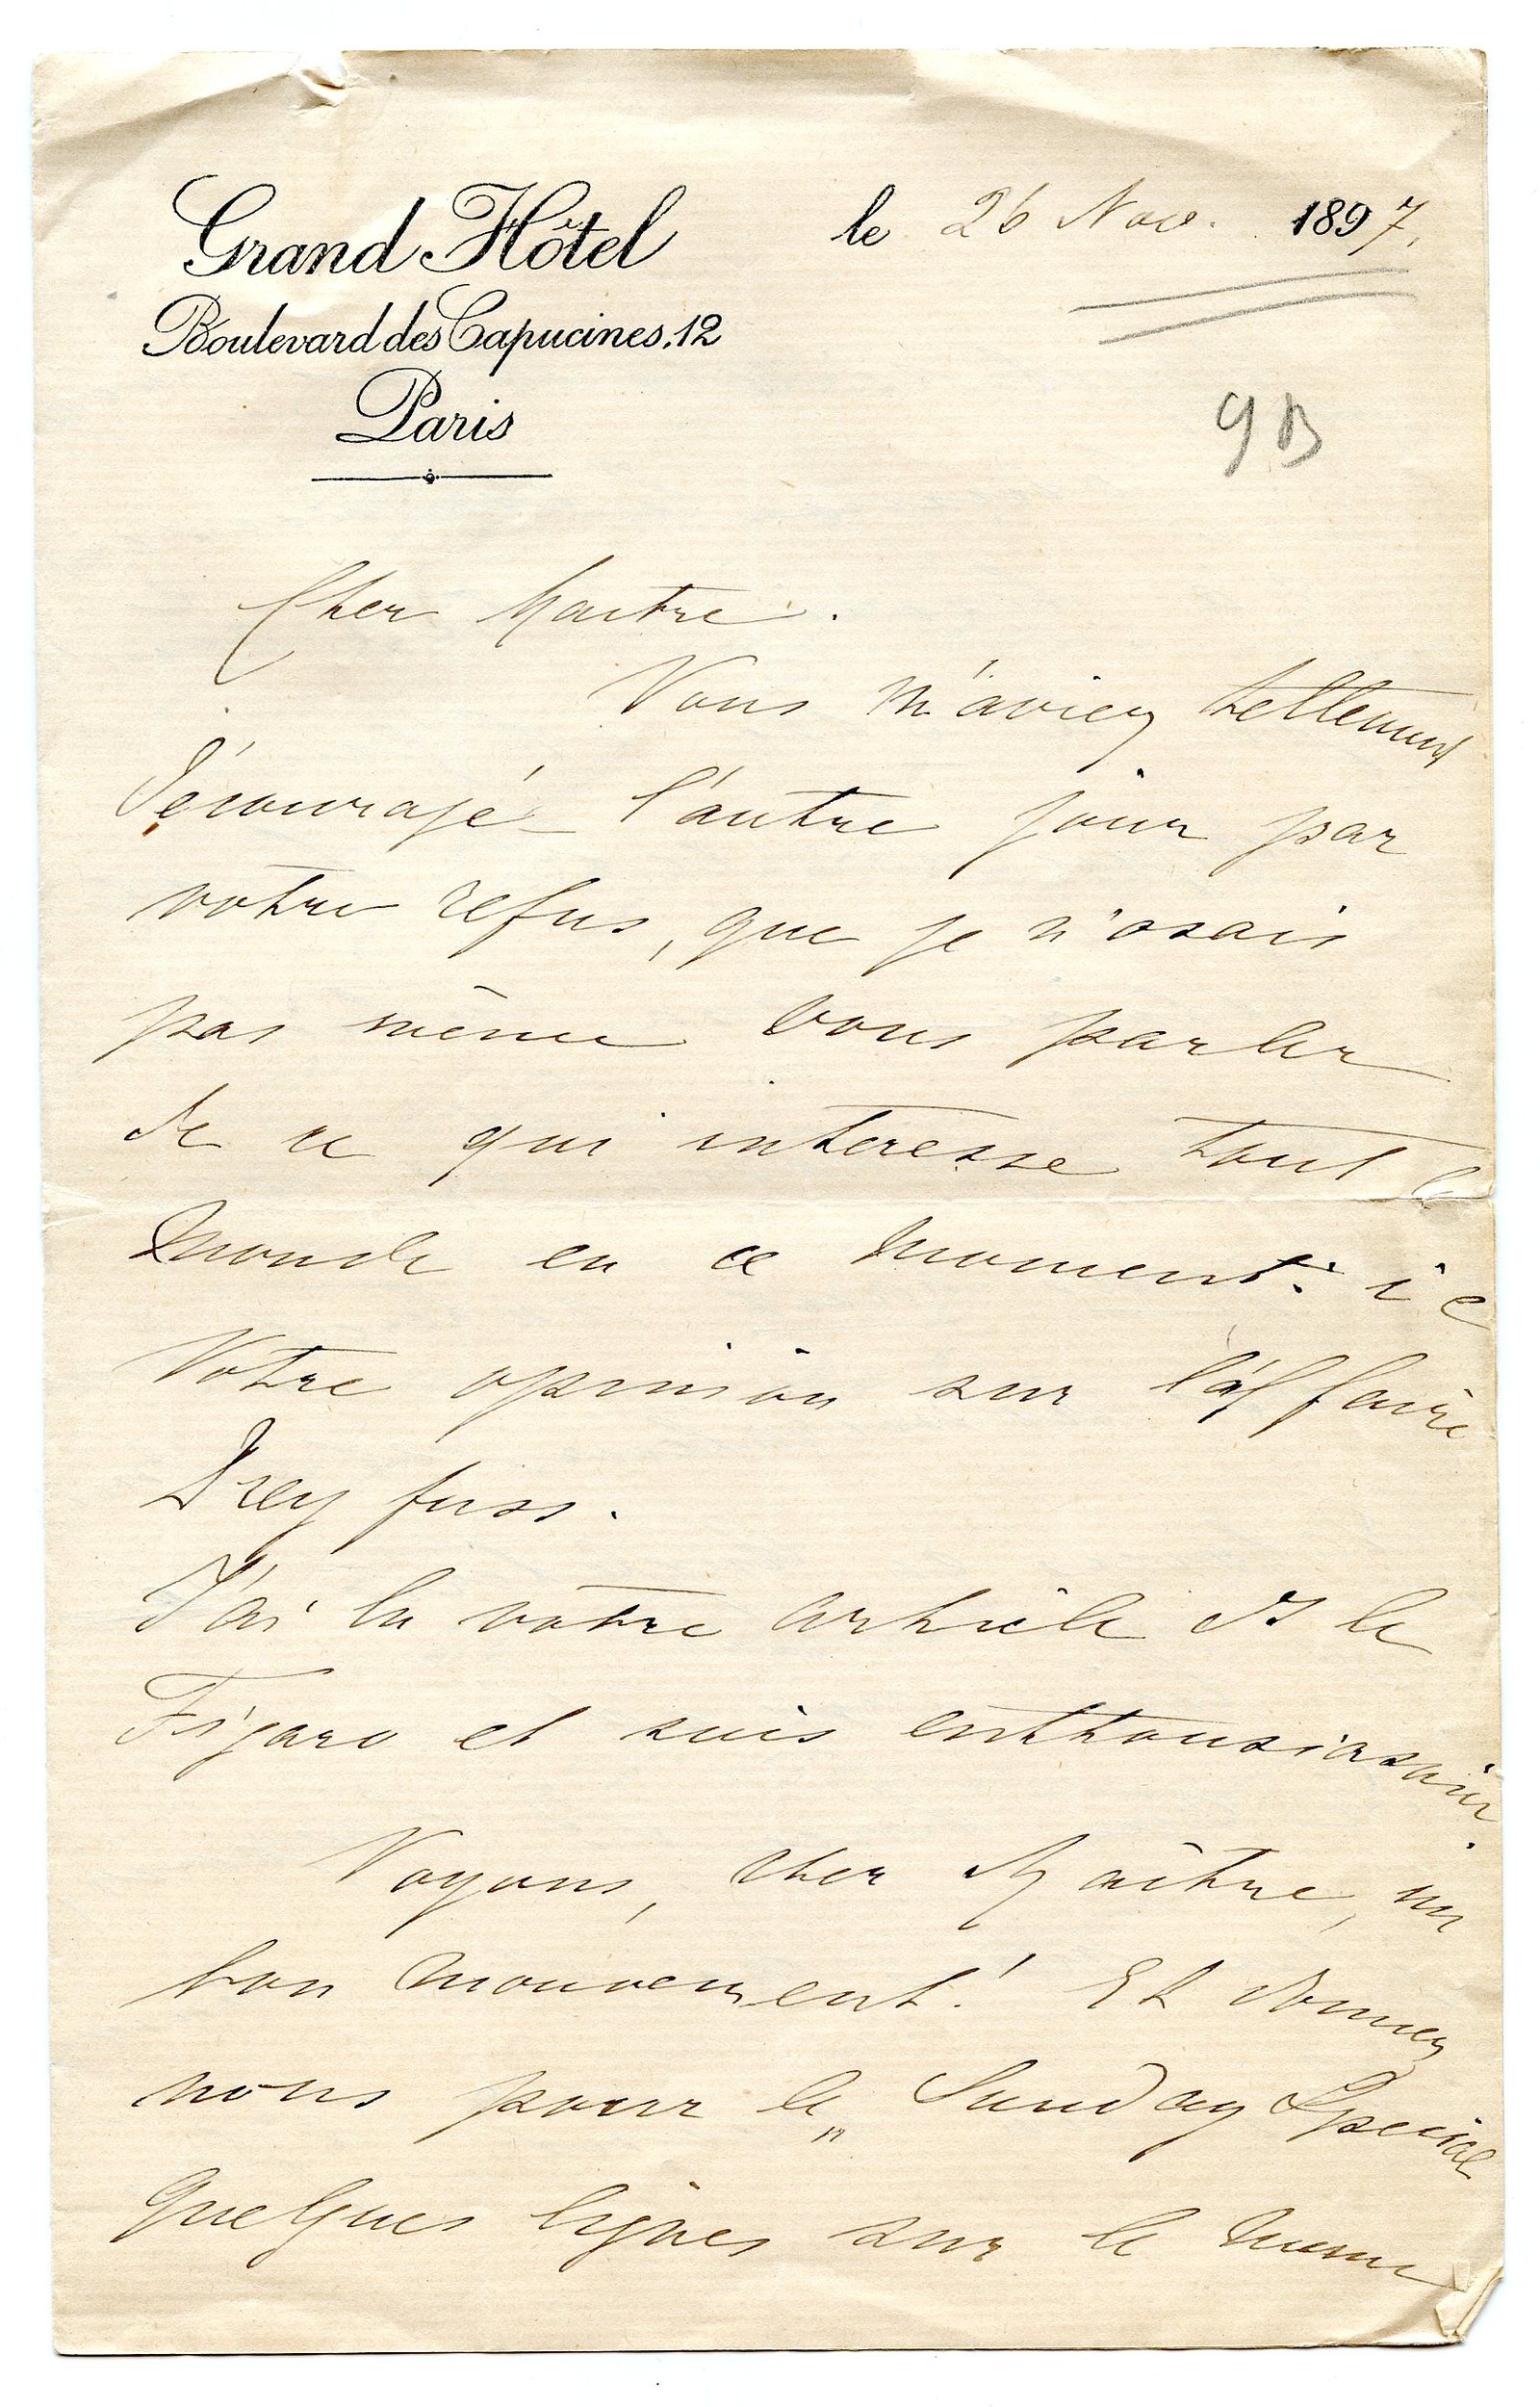 Grand Hôtel
le 26 Nov. 1897.
Boulevard des Capucines, 12
Paris
9B
Cher Maitre.
Vous m'aviez tellement
découragé l'autre jour par
votre refus, que je n'osais
pas même vous parler
de ce qui interesse tout le
monde en ce moment: i e
Votre opinion sur l'affaire
Dreyfuss.
J'ai lu votre article ds le
Figaro et suis enthousiasmée.
Voyons, cher Maître, un
bon mouvement! Et donnez
nous pour le „Sunday Special
quelques lignes sur le meme